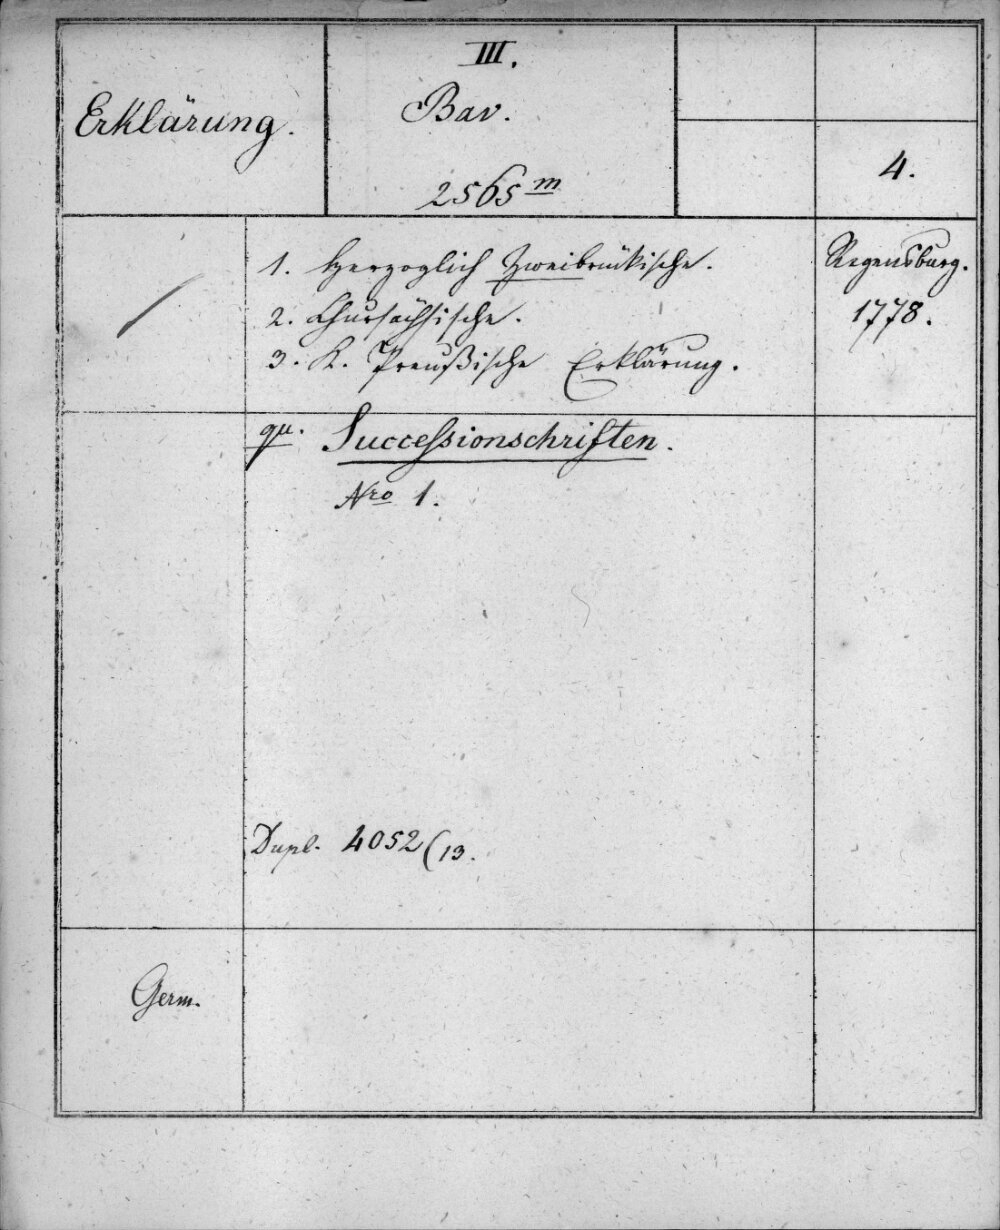 Erklärung.
III.
Bav.
2565 m
4.
1. Herzoglich Zweibrükische.
2. Chursächsische.
3. K. Preußische Erklärung.
Regensburg.
1778.
qu. Successionschriften.
Nro 1.
Dupl. 4052(13.
Germ.